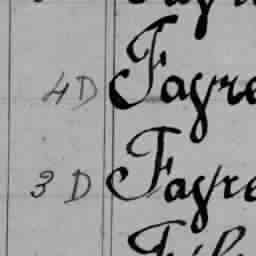 4D Fayre
3 D Fayre